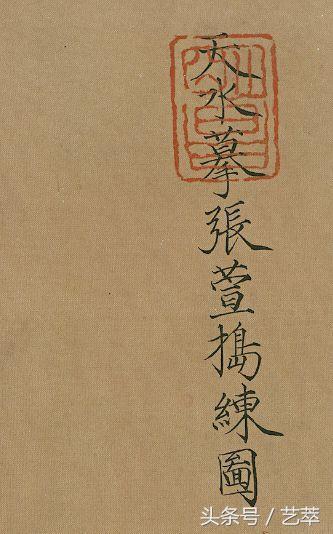 天水摹張萱搗練圖
头条号 / 艺萃